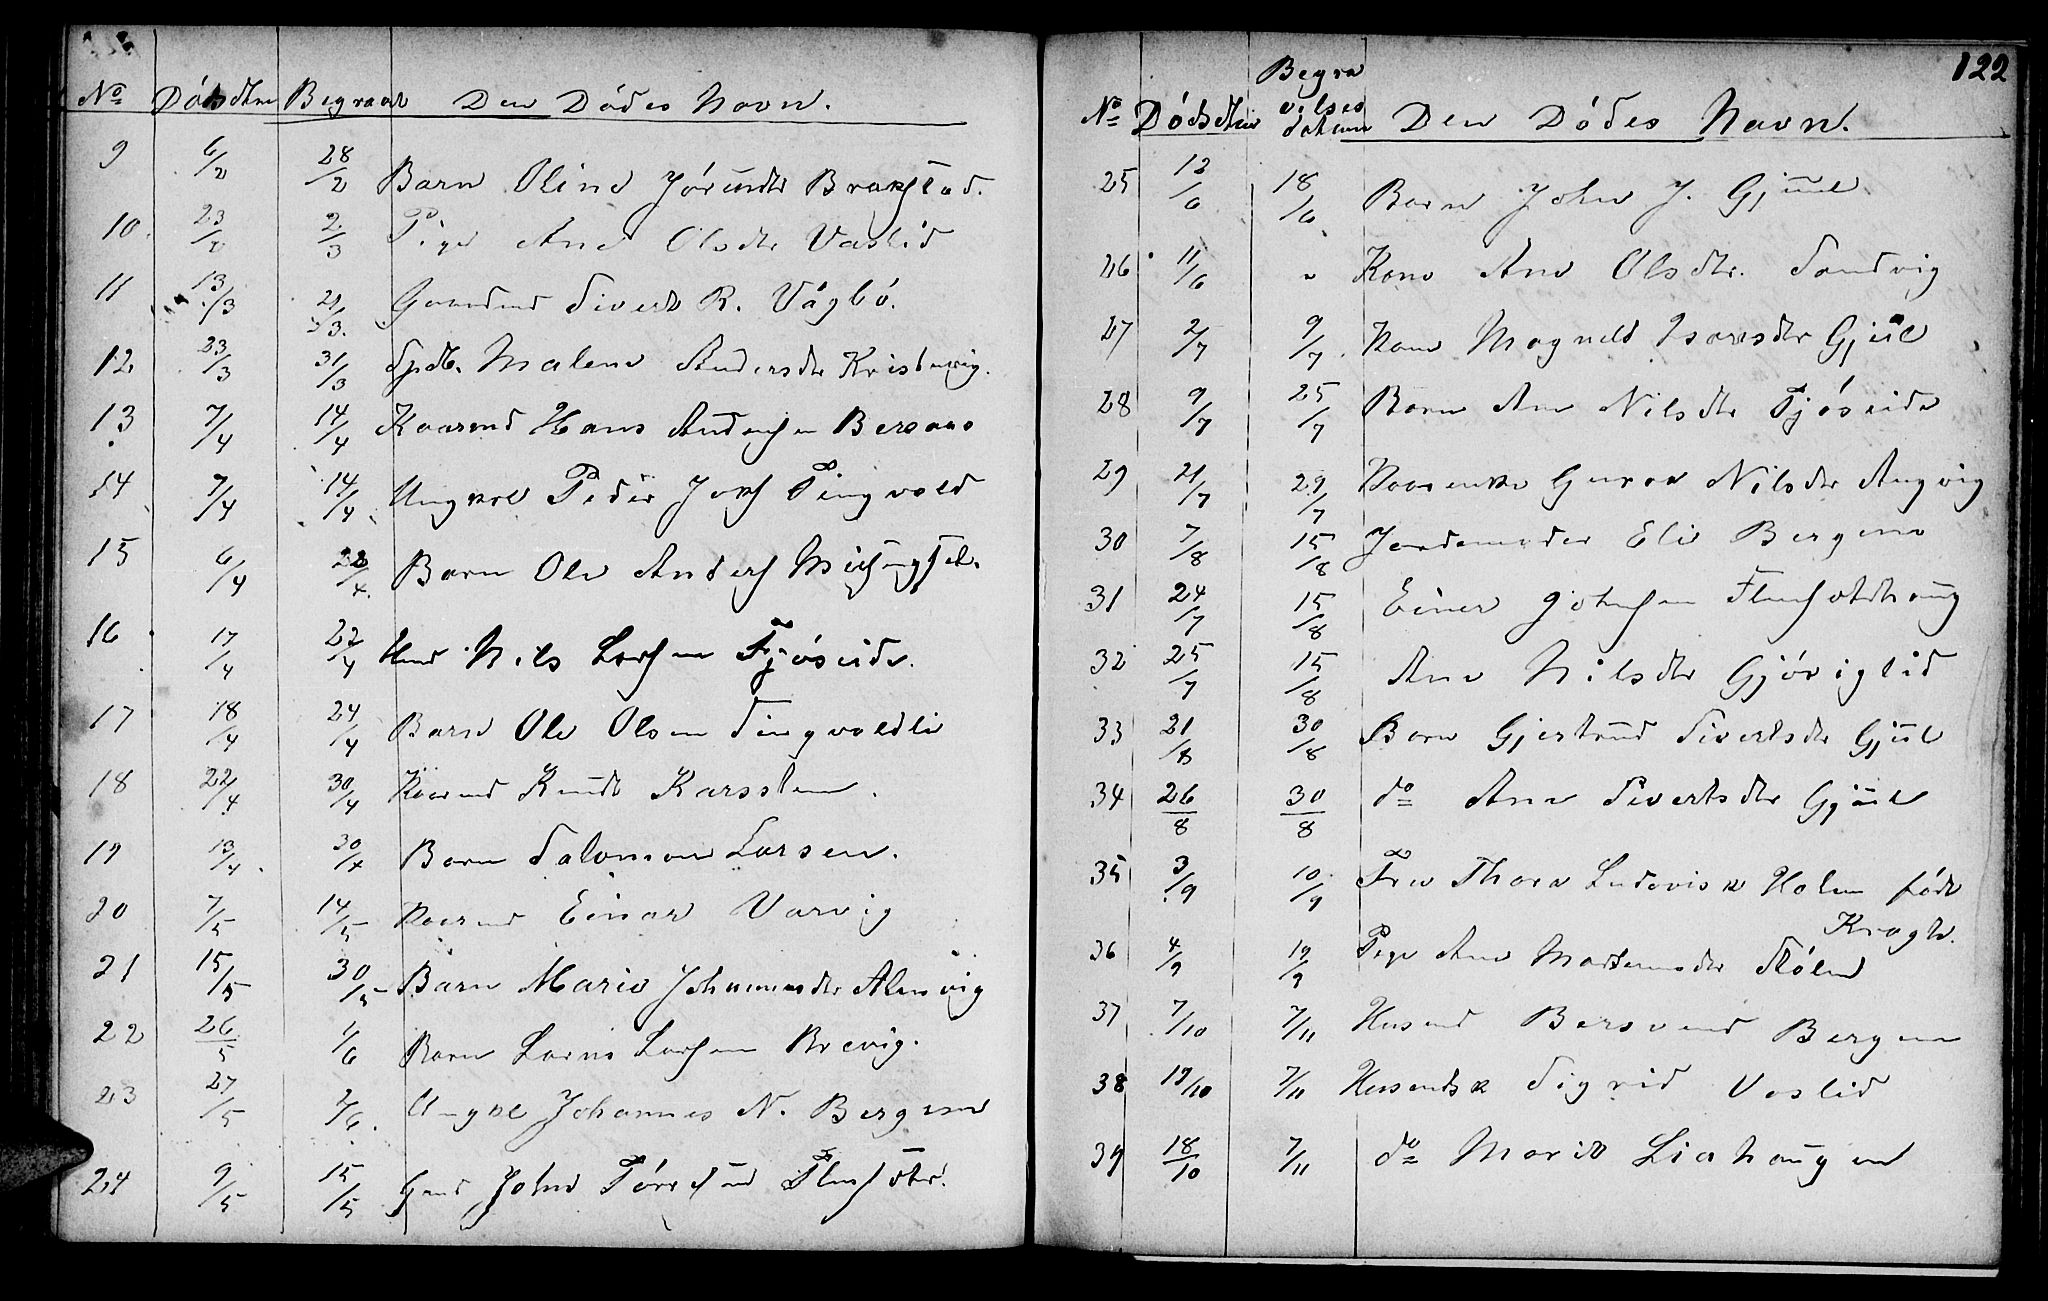 No Dödsdtm Begravd Den Dödes Navn.
9 6/2 28/2 Barn Oline Jörundtr Brakstad.
10. 23/2 2/3 Pige Ane Olsdtr Vaslid
11 13/3 21/3. Gaardmd Sivert R. Vågbö.
12 23/3 31/3 Malene Andersdtr Kristvig.
13 7/4 14/4 Kaarmd Hans Andersen Bersaas
14 7/4 14/4 Ungkrl Peder Tingvold
15 6/4 /4. Barn Ole Anders
16 17/4 22/4 Nils Larsen Fjöseide.
17 18/4 24/4 Barn Ole Olsen Tingvoldli
18 22/4 30/4 Kaarmd Knudt Karssten.
19 13/4. 30/4 Barn Salomon Larsen.
20 7/5 14/5 Kaarmd Einar Varvig
21 15/5 30/5 Barn Marie Almvig
22 26/5 1/6 Barn Larsen Brevig.
23 27/5 2/6. Ungkl Johannes N. Bergem
24 9/5 15/5 Gmd John
122
No Dödsdtm Begra
velses
datum Den Dödes Navn.
25 12/6 18/6 Barn John J. Gjül
26 11/6 " Kone Ane Olsdtr. Sandvig
27 2/7 9/7. Kone Magnild Gjül
28 9/7 25/7 Barn Ane Nilsdtr Fjöseide
29 21/7 29/7 Kaarenke Guroe Nilsdtr Angvig
30 7/8 15/8 Jordemoder Eli Bergem
31 24/7 15/8 Einer Johnsen
32 25/7 15/8 Ane Nilsdtr Gjöviglid
33 21/8 30/8 Barn Gjertrud Sivertsdtr Gjül
34 26/8 30/8 do Ane Sivertsdtr Gjül
35 3/9 10/9 Fru Thora Ludovis k Holm född
Krogh.
36 4/9 19/9 Pige Ane Stölen
37 7/10 7/11 Husmd Bersvend Bergem
38 19/10 7/11 Husmdsk Sigrid Vaslid
39 18/10 7/11 do Marit Liahaugen